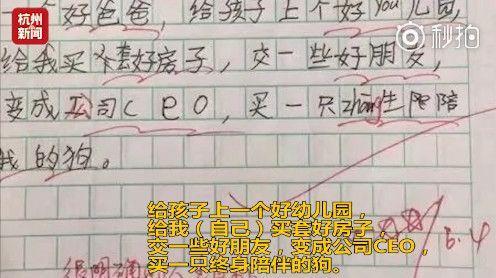 杭州
新闻
秒拍
一个好爸爸，给孩子上个好you儿园，
给我买个套好房子，交一些好朋友，
变成公司CeO，买一只zhong生陪陪
我的狗。
给孩子上一个好幼儿园，
给我（自己）买套好房子，
交一些好朋友，变成公司CEO，
买一只终身陪伴的狗。
很明确
6.4